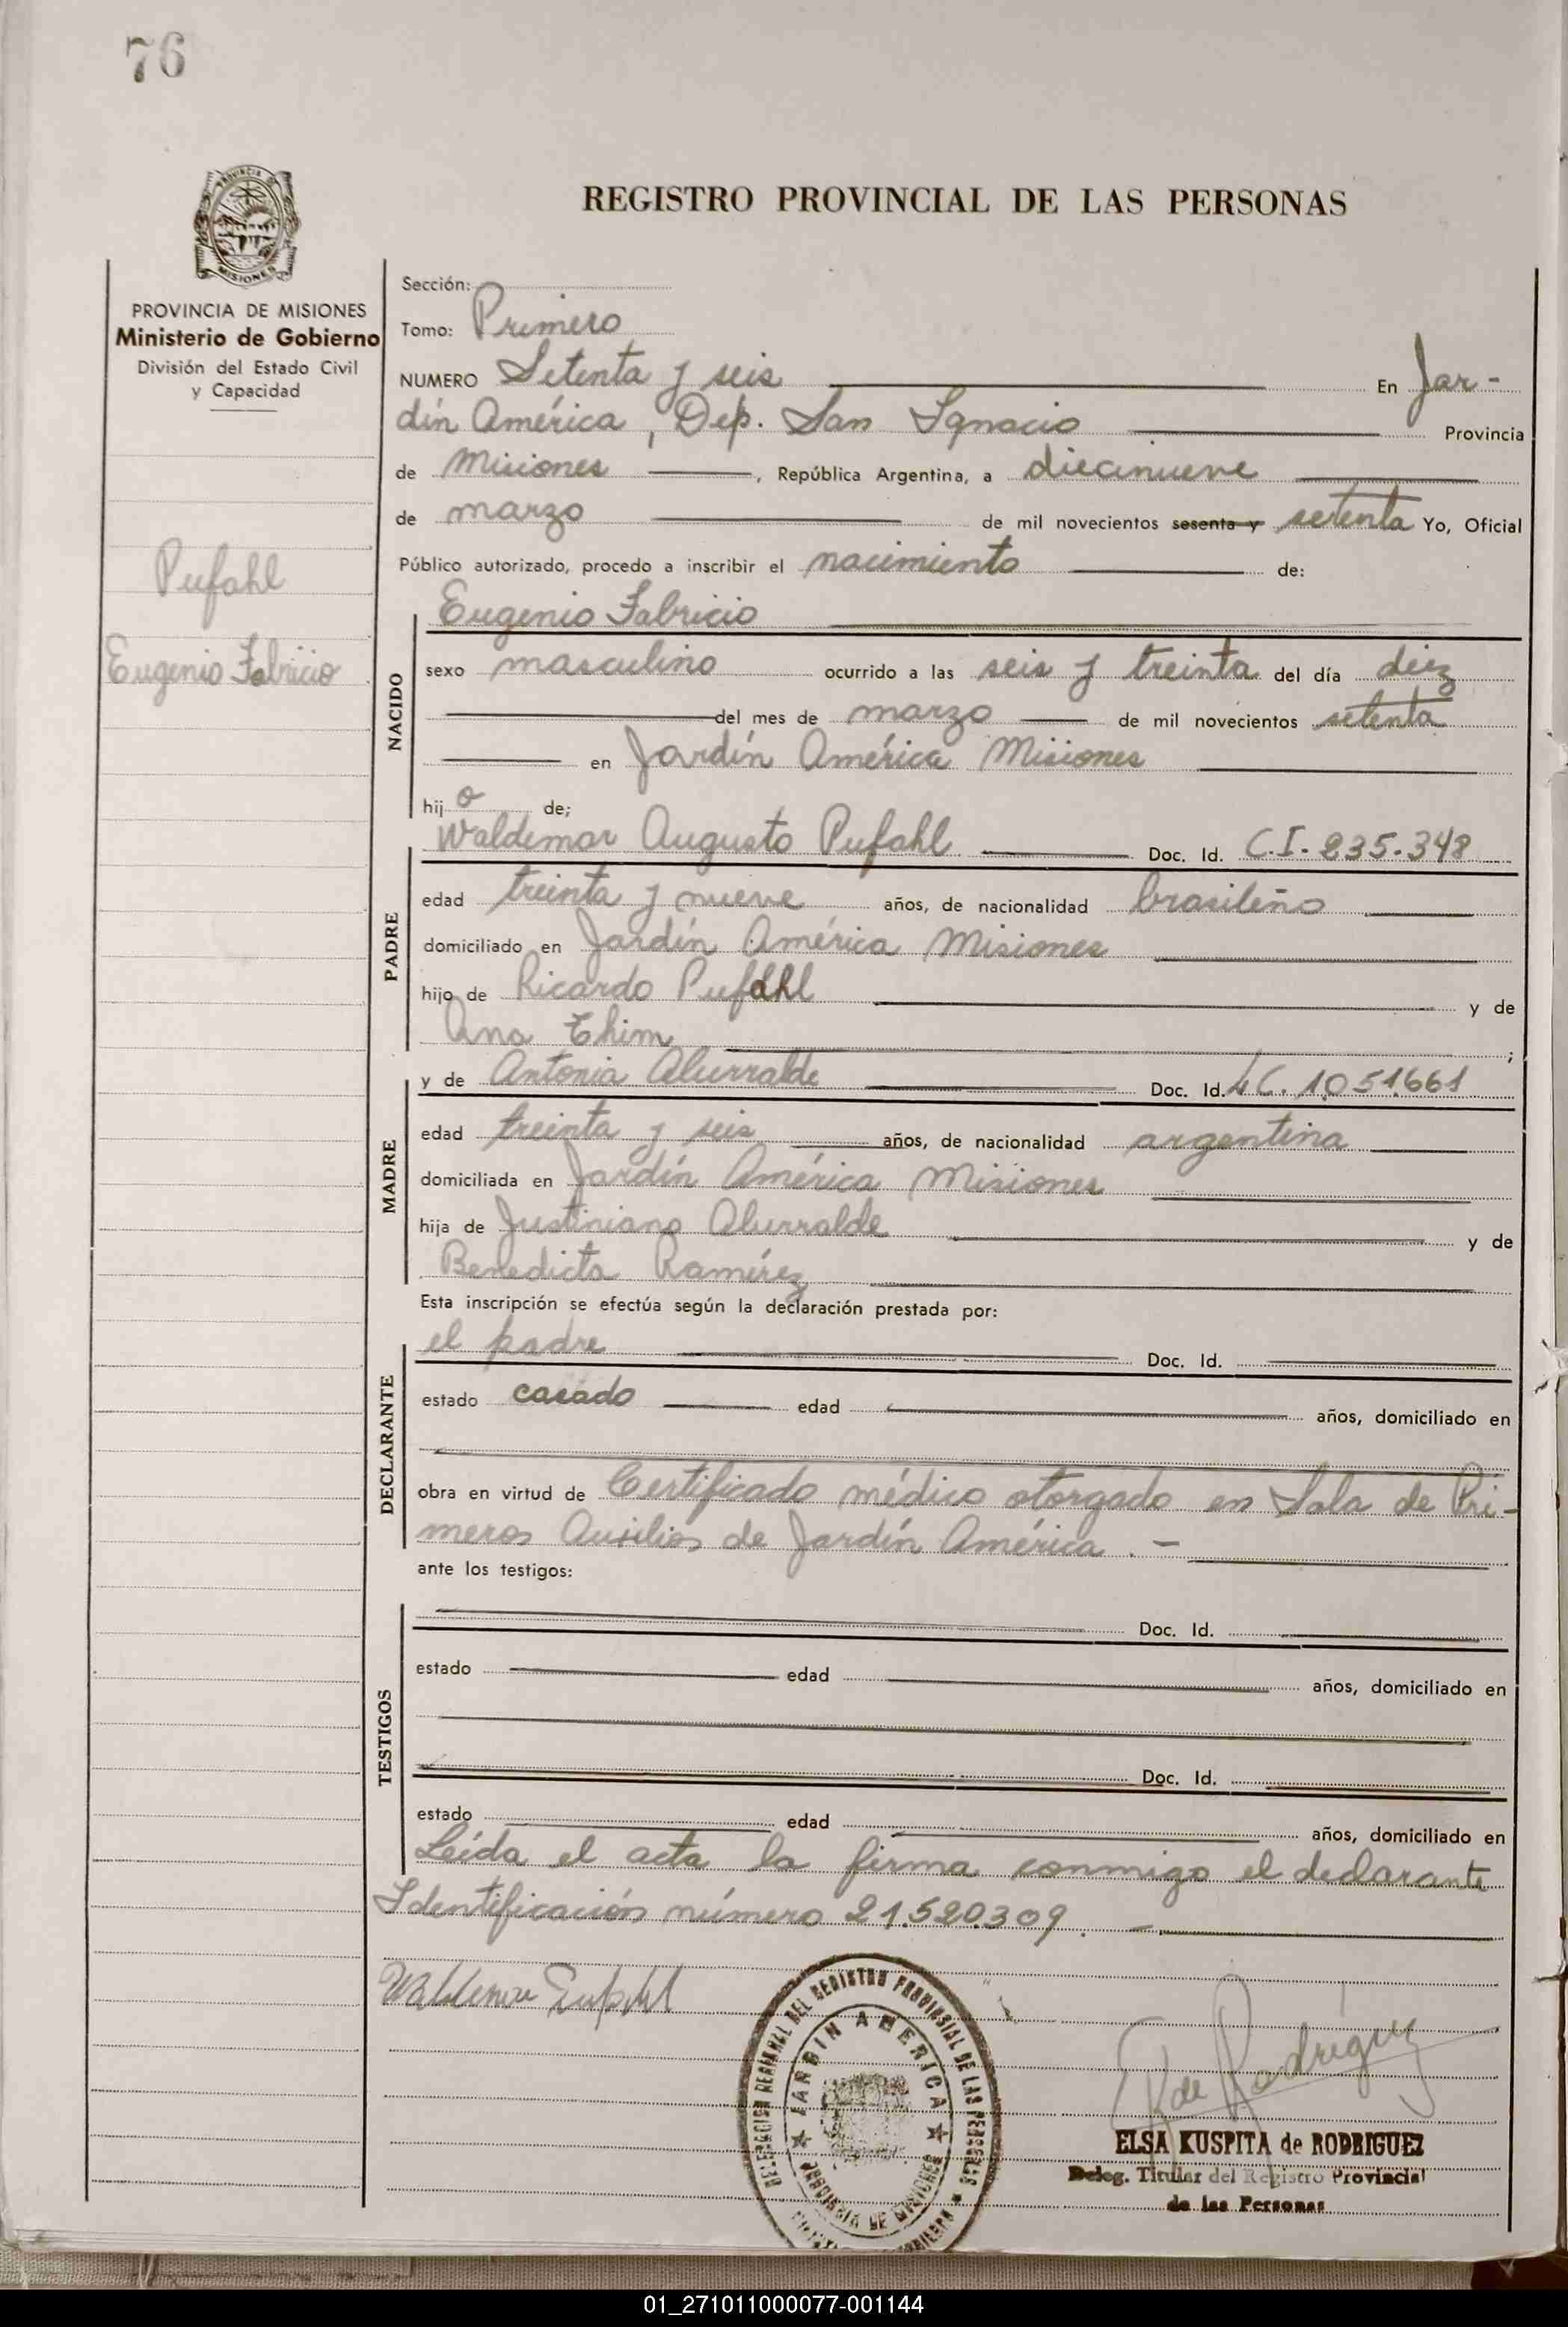 76
PROVINCIA DE MISIONES
Ministerio de Gobierno
División del Estado Civil
y Capacidad
Pufahl
Eugenio Fabricio
REGISTRO PROVINCIAL DE LAS PERSONAS
Sección:
Tomo: Primero
NUMERO Setenta y seis En Jar-
dín América, Dep. San Ignacio Provincia
de Misiones, República Argentina, a diecinueve
de marzo de mil novecientos sesenta y setenta Yo, Oficial
Público autorizado, procedo a inscribir el nacimiento de:
Eugenio Fabricio
NACIDO
sexo masculino ocurrido a las seis y treinta del día diez
del mes de marzo de mil novecientos setenta
en Jardín América Misiones
hijo de;
Waldemar Augusto Pufahl Doc. Id. C.I. 235.348
PADRE
edad treinta y nueve años, de nacionalidad brasileño
domiciliado en Jardín América Misiones
hijo de Ricardo Pufahl y de
Ana Thim ;
y de Antonia Alurralde Doc. Id. LC. 1.051.661
MADRE
edad treinta y seis años, de nacionalidad argentina
domiciliada en Jardín América Misiones
hija de Justiniano Alurralde y de
Benedicta Ramírez
Esta inscripción se efectúa según la declaración prestada por:
el padre Doc. Id.
DECLARANTE
estado casado edad años, domiciliado en
obra en virtud de Certificado médico otorgado en Sala de Pri-
meros Auxilios de Jardín América.-
ante los testigos:
TESTIGOS
Doc. Id.
estado edad años, domiciliado en
Doc. Id.
estado edad años, domiciliado en
Leída el acta la firma conmigo el declarante
Identificación número 21.520.309.-
Waldemar Pufahl
DELEGACION REGIONAL DEL REGISTRO PROVINCIAL DE LAS PERSONAS
JARDIN AMERICA
PROVINCIA DE MISIONES
K de Rodríguez
ELSA KUSPITA de RODRIGUEZ
Deleg. Titular del Registro Provincial
de las Personas
01_271011000077-001144